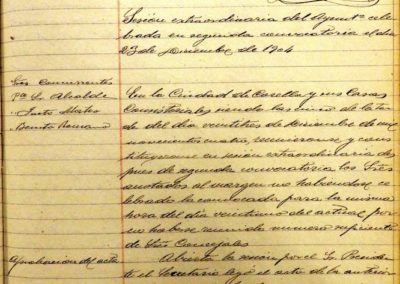 Sesión extraordinaria del Aymntº cele-
brada en segunda convocatoria el dia
23 de Diciembre de 1904
Sres concurrentes
Pte Sr Alcalde
Justo Mateo
Benito Romano
En la Ciudad de Corella y sus Casas
Consistoriales siendo las cinco de la tar
de del dia veintitres de Diciembre de mil
novecientos cuatro, reunieronse y cons
tituyeronse en sesión extraordinaria des
pues de segunda convocatoria los Sres
anotados al margen no habiendose ce
lebrado la convocada para la misma
hora del dia veintiuno del actual por
no haberse reunido numero suficiente
de Sres Concejales
Aprobacion del acta
Abierta la sesión por el Sr Presiden
te el Secretario leyó el acta de la anterior